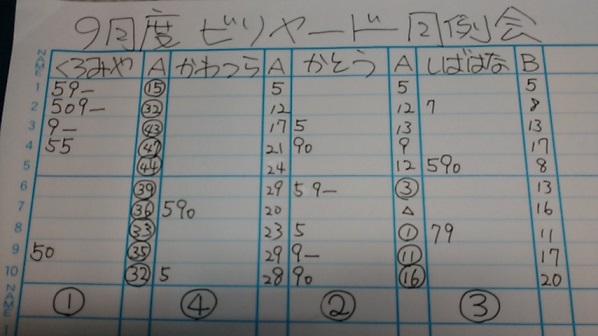 9回度 ビリヤード回例会
NAME くろみや A かわつら A かとう A しばはな B
1 59− ⑮ 5 5 5
2 509− ㉜ 12 12 7 8
3 9− ㊸ 17 5 13 13
4 55 ㊼ 21 90 9 17
5 ㊹ 24 12 590 8
6 ㊴ 29 59− ③ 13
7 ㊱ 590 20 △ 16
8 ㉝ 23 5 ① 79 11
9 50 ㉟ 29 9− ⑪ 17
10 ㉜ 5 28 90 ⑯ 20
① ④ ② ③
NAME
1